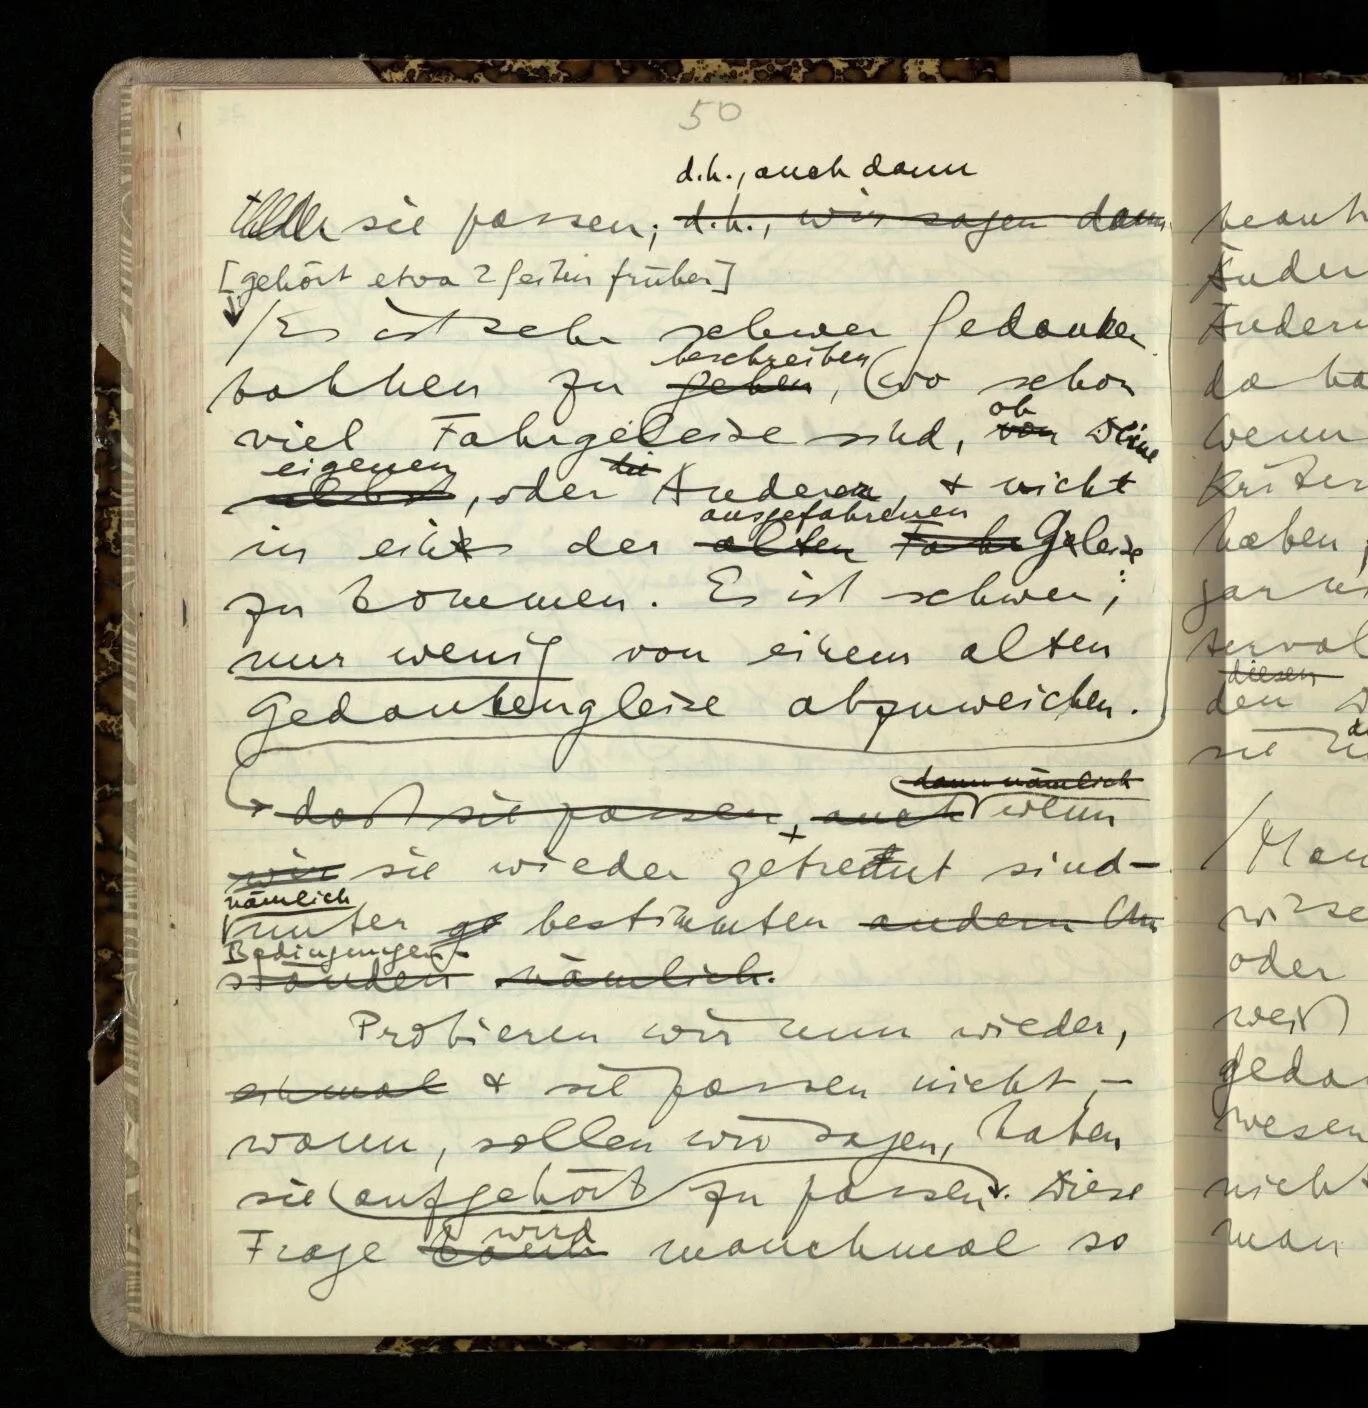 50
d.h., auch dann
sie passen; d.h., wir sagen dann
[gehört etwa 2 Seiten früher]
/Es ist sehr schwer Gedanken
bahnen zu geben, (wo schon
beschreiben
viel Fahrgeleise sind, von Deine
ob
eigenen
selbst, oder die Anderer, & nicht
ausgefahrenen
in eines der alten Fahr Geleise
zu kommen. Es ist schwer;
nur wenig von einem alten
Gedankengleise abzuweichen.
dann nämlich
daß sie passen, auch wenn
wir sie wieder getrennt sind –
nämlich
unter bestimmten andern Um
Bedingungen.
ständen nämlich.
Probieren wir nun wieder,
einmal & sie passen nicht, –
wann, sollen wir sagen, haben
sie aufgehört zu passen. Diese
wird
Frage kann manchmal so
da
wenn
haben,
gar
diesen
den
sie
oder
weiß
wesen
nicht
man